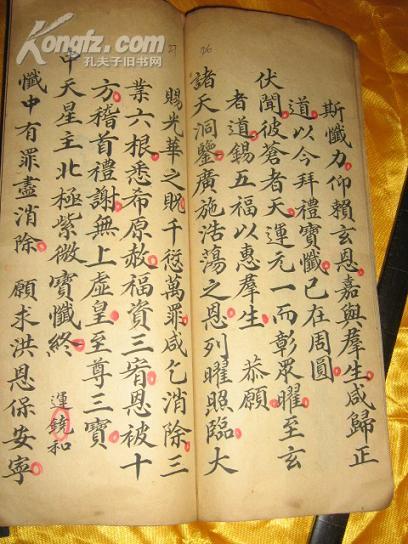 Kongfz.com
孔夫子旧书网
26
斯懺力仰賴玄恩嘉與羣生咸歸正
道以今拜禮寶懺已在周圓
伏聞彼蒼者天運元一而彰眾曜至玄
者道錫五福以惠羣生 恭願
諸天洞鑒廣施浩蕩之恩列曜照臨大
27
賜光華之貺千愆萬罪咸乞消除三
業六根悉希原赦福資三宥恩被十
方稽首禮謝無上虛皇至尊三寶
中天星主北極紫微寶懺終 運鐃和
懺中有罪盡消除 願求洪恩保安寧